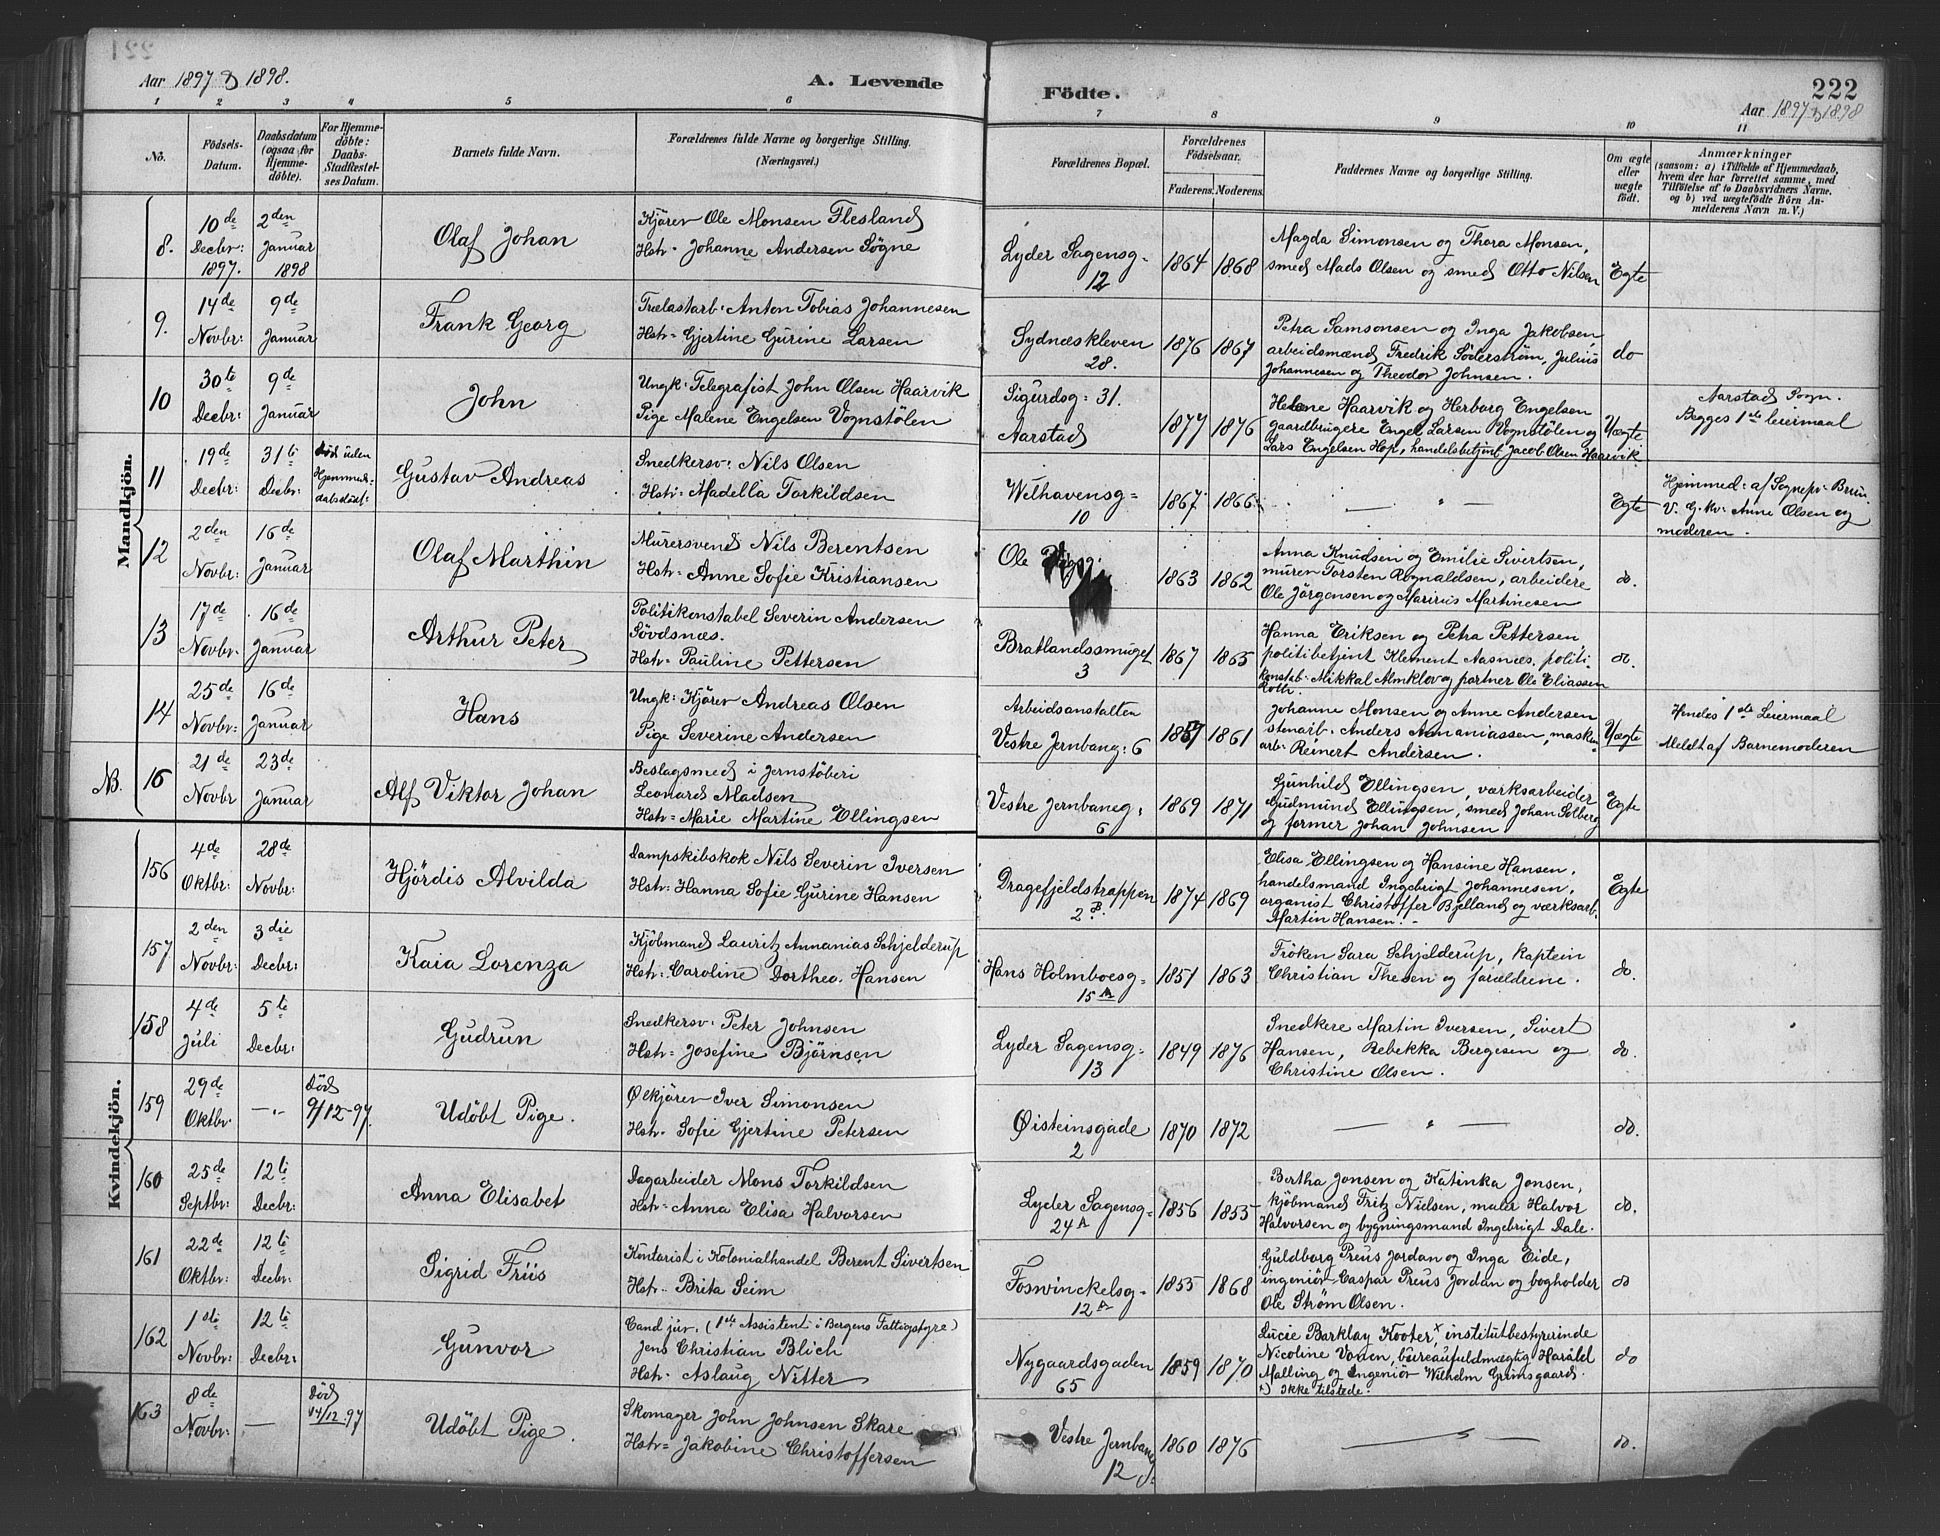 Aar 1897 & 1898.
A. Levende
Födte.
222
Aar 1897 & 1898
1 2 3 4 5 6 7 8 9 10 11
No.
Födsels-
Datum.
Daabsdatum
(ogsaa for
Hjemme-
döbte).
For Hjemme-
döbte:
Daabs-
Stadfæstel-
ses Datum.
Barnets fulde Navn.
Forældrenes fulde Navne og borgerlige Stilling.
(Næringsvei.)
Forældrenes Bopæl.
Forældrenes
Födselsaar.
Faderens. Moderens.
Faddernes Navne og borgerlige Stilling.
Om ægte
eller
uægte
födt.
Anmærkninger
(saasom: a) i Tilfælde af Hjemmedaab,
hvem der har forrettet samme, med
Tilföielse af to Daabsvidners Navne,
og b) ved uægtefödte Börn An-
melderens Navn m. V.)
Mandkjön.
8.
10de
Decbr:
1897.
2den
Januar
1898
Olaf Johan
Kjörer Ole Monsen Flesland
Hstr. Johanne Andersen Søgne
Lyder Sagensg-
12
1864
1868
Magda Simonsen og Thora Monsen,
smed Mads Olsen og smed Otto Nilsen
Egte
9.
14de
Novbr:
9de
Januar
Frank Georg
Trælastarb. Anton Tobias Johannesen
Hstr. Gjertine Gurine Larsen
Sydnæskleven
28.
1876
1867
Petra Samsonsen og Inga Jakobsen,
arbeidsmænd Fredrik Söderstrøm, Julius
Johannesen og Theodor Johnsen.
do
10
30te
Decbr:
9de
Januar
John
Ungk: Telegrafist John Olsen Haarvik
Pige Malene Engelsen Vognstölen
Sigurdsg: 31.
Aarstad
1877
1876
Helene Haarvik og Herborg Engelsen
gaardbrugere Engel Larsen Vognstölen og
Lars Engelsen Hop, handelsbetjent Jacob Olsen Haarvik
Uægte
Aarstad Sogn.
Begges 1ste leiermaal
11
19de
Decbr:
31te
Decbr:
Död uden
Gustav Andreas
Snedkersv: Nils Olsen
Hstr: Madella Torkildsen
Welhavensg=
10
1867
1866
— " —
Egte
Hjemmed: af Sognepr. Bruun
V. G. kv: Anne Olsen og
moderen.
12
2den
Novbr:
16de
Januar
Olaf Marthin
Murersvend Nils Berentsen
Hstr. Anne Sofie Kristiansen
Ole
1863
1862
Anna Knudsen og Emilie Sivertsen,
murer Torsten Rognaldsen, arbeidere
Ole Jörgensen og Marius Martinesen
do.
13
17de
Novbr:
16de
Januar
Arthur Peter
Politikonstabel Severin Andersen
Sövdsnæs.
Hstr. Pauline Pettersen
Bratlandssmuget
3
1867
1865
Hanna Eriksen og Petra Pettersen
politibetjent Klement Aasnæs, politi-
konstab. Mikkal Almklov og portner Ole Eliassen
do.
14
25de
Novbr:
16de
Januar
Hans
Ungk: Kjörer Andreas Olsen
Pige Severine Andersen
Arbeidsanstalten
Vestre Jernbaneg: 6
1861
Johanne Monsen og Anne Andersen
stenarb. Anders Annaniassen, maskin-
arb. Reinert Andersen.
Uægte
Hendes 1ste Leiermaal
Meldt af Barnemoderen
NB.
16
21de
Novbr
23de
Januar
Alf Viktor Johan
Beslagsmed i Jernstöberi
Leonard Madsen
Hstr. Marie Martine Ellingsen
Vestre Jernbaneg:
6
1869
1871
Gunhild Ellingsen, værksarbeider
Gudmund Ellingsen, smed Johan Solberg
og former Johan Johnsen
Egte
Kvindekjön.
156
4de
Oktbr:
28de
Novbr:
Hjördis Alvilda
Dampskibskok Nils Severin Iversen
Hstr: Hanna Sofie Gurine Hansen
Dragefjeldstrappen
2B.
1874
1869
Elisa Ellingsen og Hansine Hansen,
handelsmand Ingebrigt Johannesen,
organist Christoffer Bjelland og værksarb.
Martin Hansen.
Egte
157
2den
Novbr:
3die
Decbr:
Kaia Lorenza
Kjöbmand Lauritz Annanias Schjelderup
Hstr: Caroline Dorthea Hansen
Hans Holmboesg-
15A
1851
1863
Fröken Sara Schjelderup, kaptein
Christian Thesen og forældrene.
do.
158
4de
Juli
5te
Decbr:
Gudrun
Snedkersv. Peter Johnsen
Hstr. Josefine Björnsen
Lyder Sagensg-
13
1849
1876
Snedkere Martin Iversen, Sivert
Hansen, Rebekka Bergesen og
Christine Olsen.
do.
159
29de
Oktbr.
—"—
Död
9/12-97.
Udöbt Pige.
Ölkjörer Iver Simonsen
Hstr. Sofie Gjertine Petersen
Øisteinsgade
2
1870
1872
— " —
do.
160
25de
Septbr:
12te
Decbr:
Anna Elisabet
Dagarbeider Mons Torkildsen
Hstr. Anna Elisa Halvorsen
Lyder Sagensg-
24A
1856
1855
Bertha Jonsen og Katinka Jonsen,
kjöbmand Fritz Nielsen, maler Halvor
Halvorsen og bygningsmand Ingebrigt Dale.
do.
161
22de
Oktbr:
12te
Decbr:
Sigrid Friis
Kontorist i Kolonialhandel Berent Sivertsen
Hstr. Brita Seim
Foswinckelsg-
12A
1855
1868
Guldborg Preus Jordan og Inga Eide,
ingeniör Caspar Preus Jordan og bogholder
Ole Strøm Olsen.
do
162
1ste
Novbr:
12te
Decbr:
Gunvor
Cand jur. (1ste Assistent i Bergens Fattigstyre)
Jens Christian Blich
Hstr. Aslaug Nitter
Nygaardsgaden
65
1859
1870
Lucie Barklay Kooter,x institutbestyrerinde
Nicoline Vonen, bureaufuldmægtig Harald
Malling og Ingeniör Wilhelm Grimsgaard.
x) Ikke tilstede.
do
163
8de
Novbr:
—
Död
14/12-97
Udöbt Pige.
Skomager John Johnsen Skare
Hstr. Jakobine Christoffersen
Vestre Jernbaneg.
12
1860
1876
— " —
do.